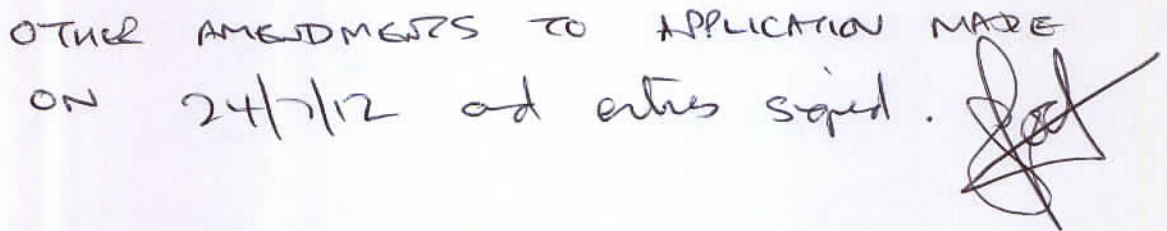 OTHER AMENDMENTS TO APPLICATION MADE
ON 24/7/12 and entries signed.